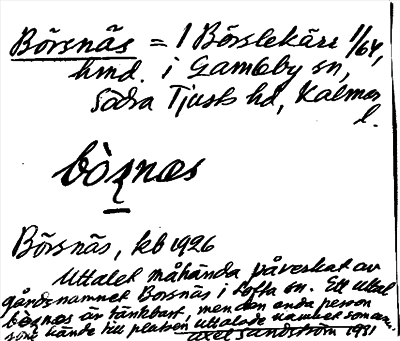 Börsnäs = 1 Börslekärr 1/64,
hmd. i Gamleby sn,
Södra Tjusts hd, Kalmar
l.
bòʐnæs
Börsnäs, kb 1926
Uttalet måhända påverkat av
gårdsnamnet Borsnäs i Lofta sn. Ett uttal
bòʐnæs är tänkbart, men den enda person
som kände till platsen uttalade namnet som ovan.
Axel Sandström 1931